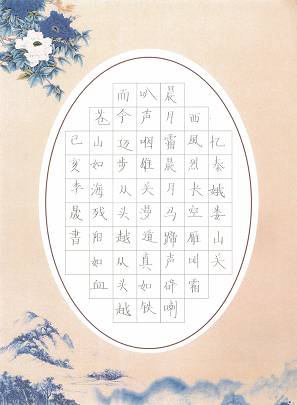 忆秦娥娄山关
西風烈长空雁叫霜
晨月霜晨月马蹄声碎喇
叭声咽雄关漫道真如铁
而今迈步从头越从头越
苍山如海残阳如血
己亥年晟書